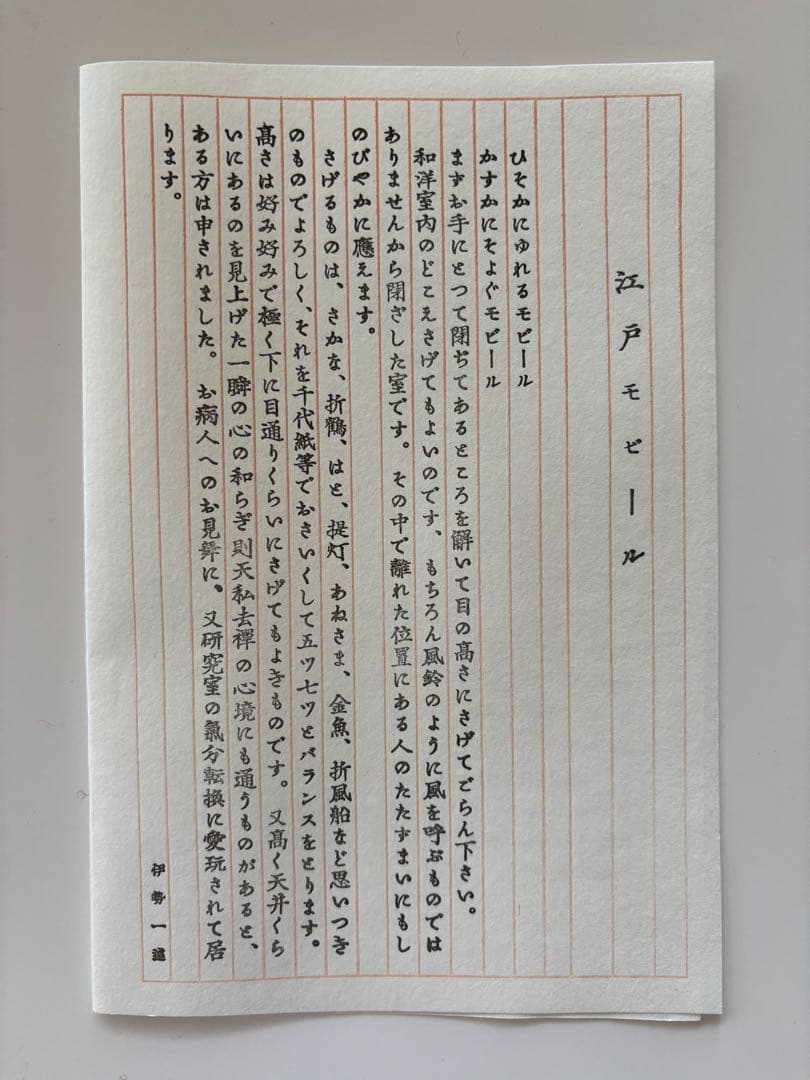 江戸モビール
ひそかにゆれるモビール
かすかにそよぐモビール
まずお手にとつて閉ぢてあるところを解いて目の高さにさげてごらん下さい。
和洋室内のどこえさげてもよいのです、もちろん風鈴のように風を呼ぶものでは
ありませんから閉ざした室です。その中で離れた位置にある人のたたずまいにもし
のびやかに應えます。
さげるものは、さかな、折鶴、はと、提灯、あねさま、金魚、折風船など思いつき
のものでよろしく、それを千代紙等でおさいくして五ツ七ツとバランスをとります。
高さは好み好みで極く下に目通りくらいにさげてもよきものです。又高く天井くら
いにあるのを見上げた一瞬の心の和らぎ則天私去禅の心境にも通うものがあると、
ある方は申されました。お病人へのお見舞に。又研究室の氣分転換に愛玩されて居
ります。
伊勢一